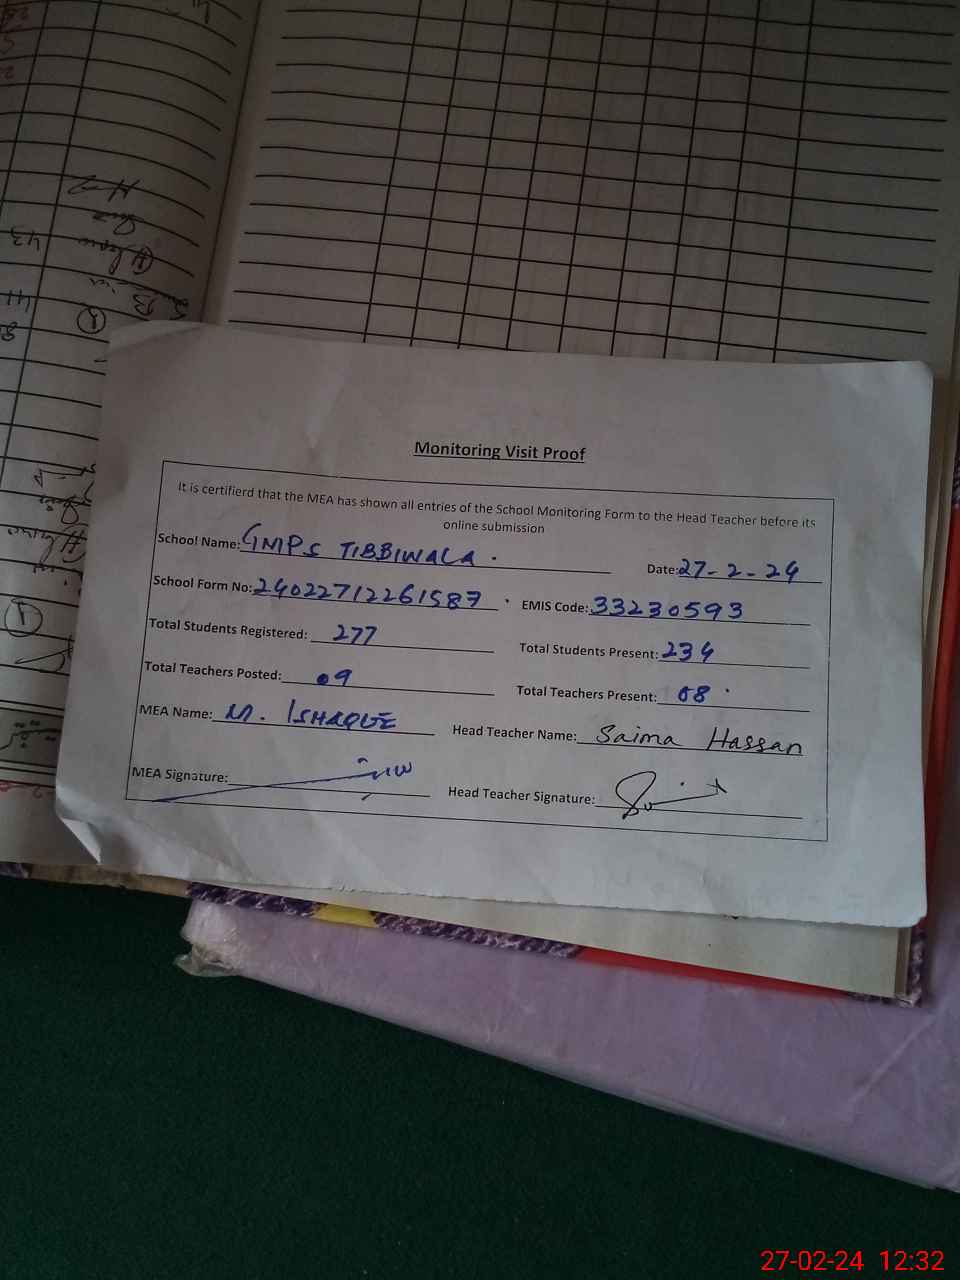 Monitoring Visit Proof
It is certifierd that the MEA has shown all entries of the School Monitoring Form to the Head Teacher before its
online submission
School Name: GMPS TIBBIWALA. Date: 27-2-24
School Form No: 24022712261587. EMIS Code: 33230593
Total Students Registered: 277 Total Students Present: 234
Total Teachers Posted: 09 Total Teachers Present: 08.
MEA Name: M. ISHAQUE Head Teacher Name: Saima Hassan
MEA Signature: Head Teacher Signature:
43
41
27-02-24 12:32